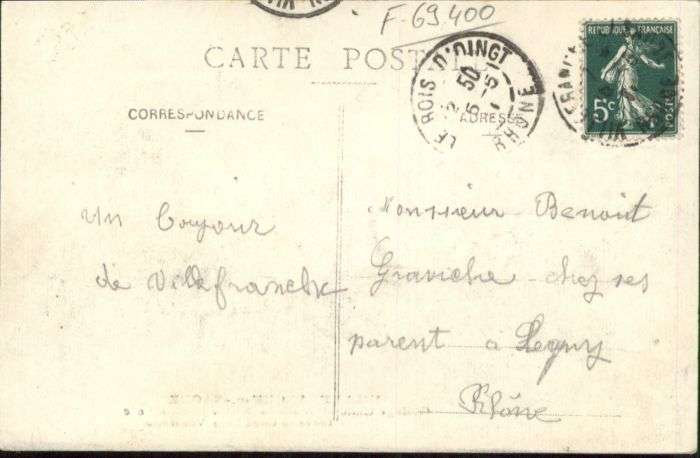 F-69.400
CARTE POSTALE
RÉPUBLIQUE FRANÇAISE
5c
POSTES
LE BOIS D'OINGT
RHONE
CORRESPONDANCE
ADRESSE
un bonjour
de Villefranche
Monsieur Benoit
Graviche chez ses
parent à Legny
Rhône